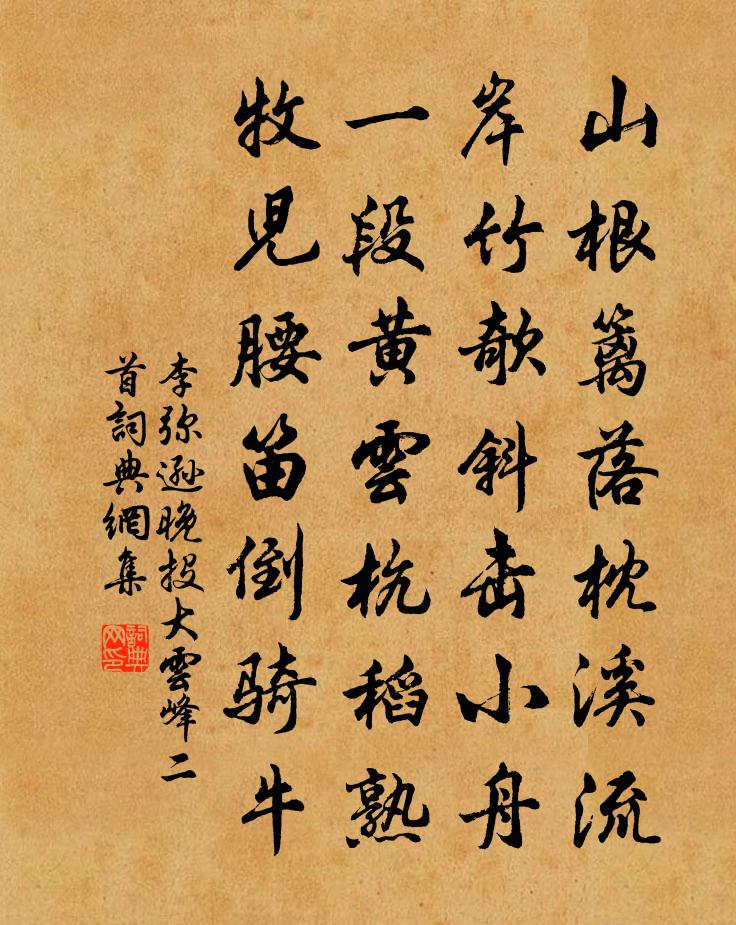 山根籬落枕溪流
岸竹欹斜击小舟
一段黄雲杭稻熟
牧児腰笛倒骑牛
李弥遜晚投大雲峰二
首詞典網集
詞典
网印